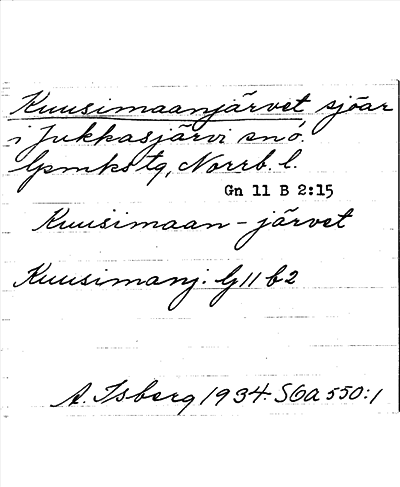 Kuusimaanjärvet sjöar
i Jukkasjärvi snö.
Lpmks tg, Norrb. l.
Gn 11 B 2:15
Kuusimaan-järvet
Kuusimanj. G 11 b 2
A. Isberg 1934. SOA 550:1